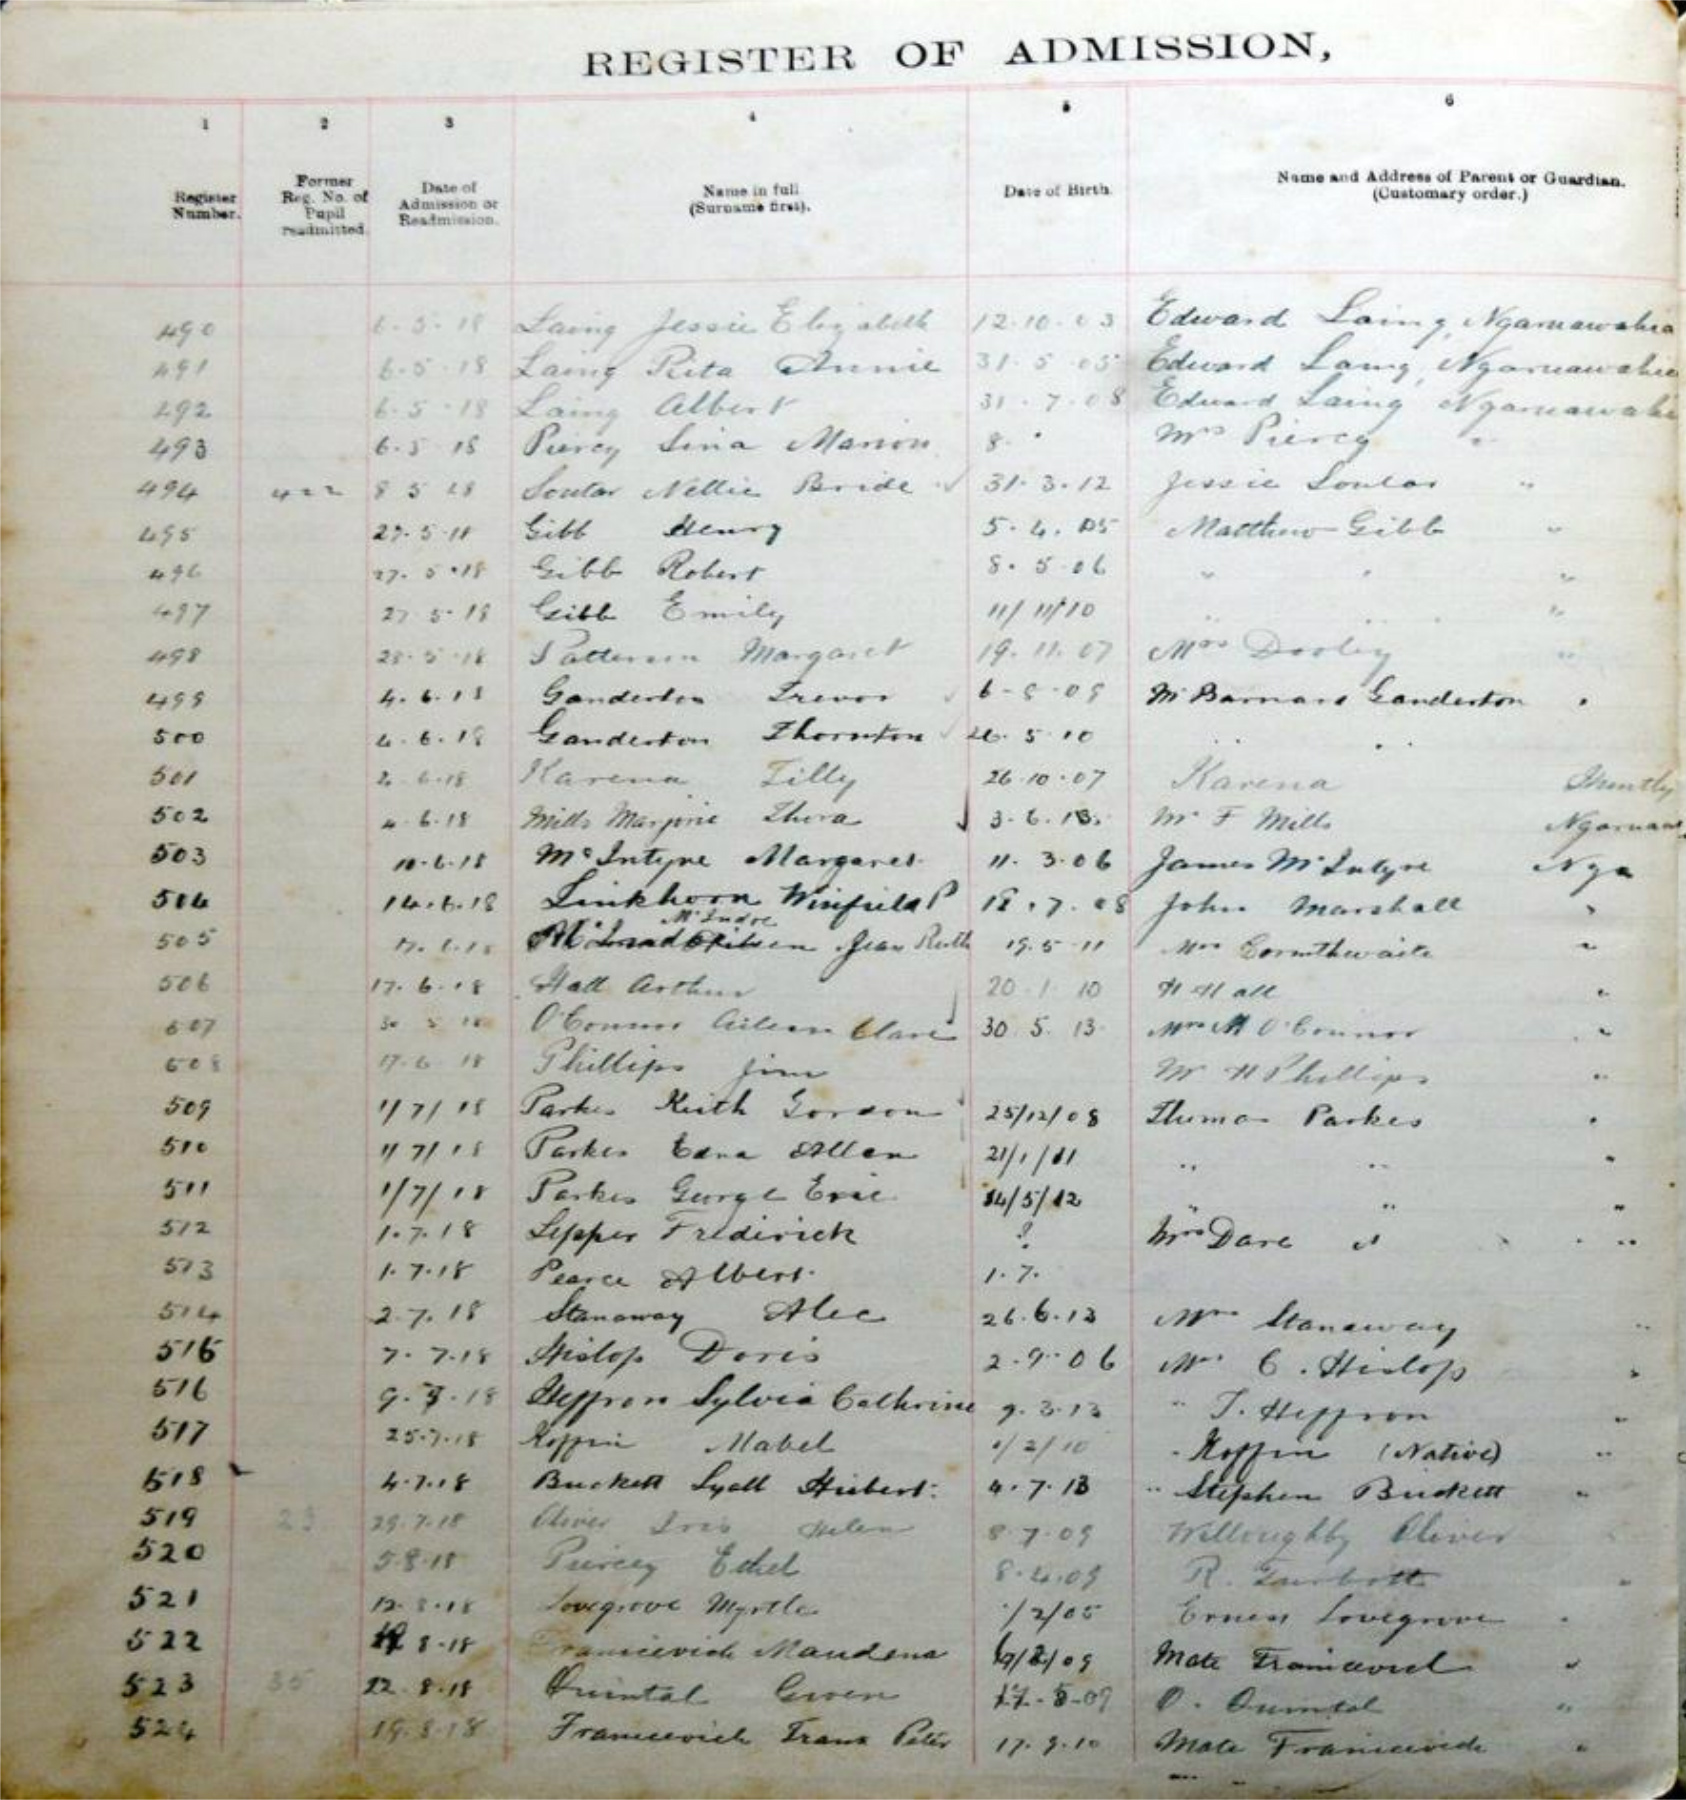 REGISTER OF ADMISSION,
1 2 3 4 5 6
Register Number. Former Reg. No. of Pupil readmitted. Date of Admission or Readmission. Name in full (Surname first). Date of Birth. Name and Address of Parent or Guardian. (Customary order.)
490 6.5.18 Laing Jessie Elizabeth 12.10.03 Edward Laing, Ngaruawahia
491 6.5.18 Laing Rita Annie 31.5.05 Edward Laing, Ngaruawahia
492 6.5.18 Laing Albert 31.7.08 Edward Laing Ngaruawahi
493 6.5.18 Piercy Lina Marion 8. Mrs Piercy "
494 422 8 5 18 Soutar Nellie Bride 31.3.12 Jessie Soutar "
495 27.5.18 Gibb Henry 5.4.05 Matthew Gibb "
496 27.5.18 Gibb Robert 8.5.06 " " "
497 27 5.18 Gibb Emily 11/11/10 " "
498 28.5.18 Patterson Margaret 19.11.07 Mrs Dooley "
499 4.6.18 Ganderton Trevor 6-8-09 Mr Barnard Ganderton "
500 4.6.18 Ganderton Thornton 26.5.10 " " 
501 4.6.18 Karena Tilly 26.10.07 Karena Huntly
502 4.6.18 Mills Marjorie Thora 3.6.13. Mr F Mills Ngaruaw
503 10.6.18 McIntyre Margaret 11.3.06 James McIntyre Nga
504 14.6.18 Linkhorn Winfield P 18.7.08 John Marshall "
McIndoe
505 17.6.18 Jean Ruth 19.5.11 Mrs Cornthwaite "
506 17.6.18 Hall Arthur 20.1.10 H Hall "
507 30 5 18 O'Connor Aileen Clare 30.5.13. Mrs M O'Connor "
508 17.6.18 Phillips Jim Mr H Phillips "
509 1/7/18 Parkes Keith Gordon 25/12/08 Thomas Parkes "
510 1/7/18 Parkes Edna Allen 21/1/11 " " "
511 1/7/18 Parkes George Eric 14/5/12 " " "
512 1.7.18 Lepper Frederick ? Mrs Dare " "
513 1.7.18 Pearce Albert. 1.7.
514 2.7.18 Stanaway Alec 26.6.13 Mrs Stanaway "
515 7.7.18 Hislop Doris 2.9.06 Mr C. Hislop "
516 9.7.18 Heffron Sylvia Cathrine 9.3.13 " T. Heffron "
517 25.7.18 Koffin Mabel 1/2/10 " Koffin (Native) "
518 4.7.18 Buckett Lyall Hubert. 4.7.13 " Stephen Buckett "
519 23 29.7.18 Oliver Iris Helen 8.7.09 Willoughby Oliver
520 5.8.18 Piercey Ethel 8.4.09 R. "
521 12.8.18 Lovegrove Myrtle 1/2/05 Ernest Lovegrove "
522 8.18 Franicevich Maudena /09 Mate Franicevich "
523 35 12.8.18 Quintal Gwen 17.5.09 O. Quintal "
524 19.8.18 Franicevich Frank Peter 17.9.10 Mate Franicevich "